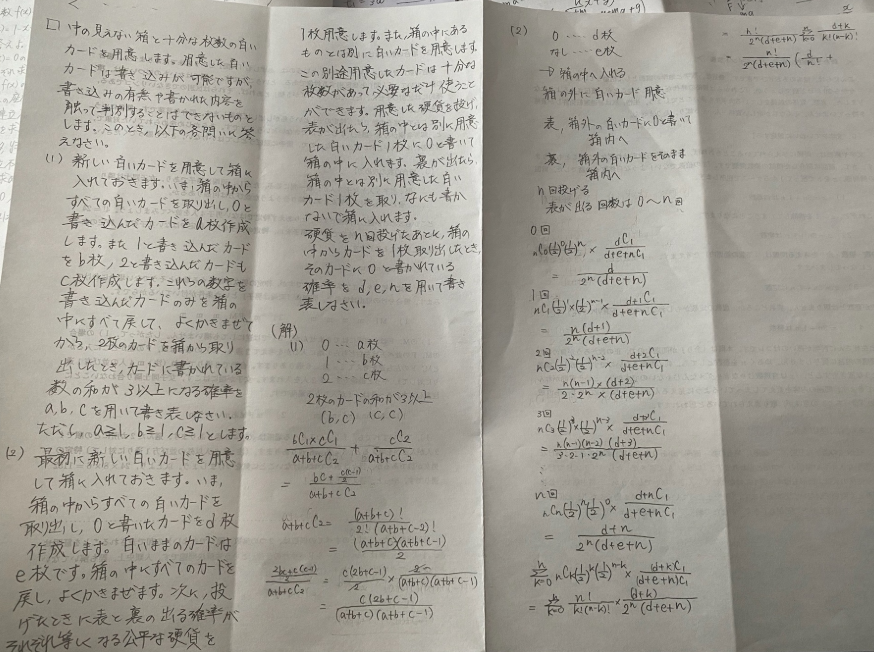 □ 中の見えない箱と十分な枚数の白い
カードを用意します。用意した白い
カードは書き込みが可能ですが、
書き込みの有無や書かれた内容を
触って判別することはできないものと
します。このとき、以下の各問いに答
えなさい。
(1) 新しい白いカードを用意して箱に
入れておきます。いま、箱の中から
すべての白いカードを取り出し、0と
書き込んだカードをa枚作成
します。また1と書き込んだカード
をb枚、2と書き込んだカードも
c枚作成します。これらの数字を
書き込んだカードのみを箱の
中にすべて戻して、よくかきまぜて
から、2枚のカードを箱から取り
出したとき、カードに書かれている
数の和が3以上になる確率を
a,b,cを用いて書き表しなさい。
ただし、a≧1,b≧1,c≧1とします。
(2) 最初に新しい白いカードを用意
して箱に入れておきます。いま、
箱の中からすべての白いカードを
取り出し、0と書いたカードをd枚
作成します。白いままのカードは
e枚です。箱の中にすべてのカードを
戻し、よくかきまぜます。次に、投
げたときに表と裏の出る確率が
それぞれ等しくなる公平な硬貨を
1枚用意します。また、箱の中にある
ものとは別に白いカードを用意します。
この別途用意したカードは十分な
枚数があって必要なだけ使うこと
ができます。用意した硬貨を投げ、
表が出たら、箱の中とは別に用意
した白いカード1枚に0と書いて
箱の中に入れます。裏が出たら、
箱の中とは別に用意した白い
カード1枚を取り、なにも書か
ないで箱に入れます。
硬貨をn回投げたあとに、箱の
中からカードを1枚取り出したとき、
そのカードに0と書かれている
確率をd,e,nを用いて書き
表しなさい。
(解)
(1) 0 … a枚
1 … b枚
2 … c枚
2枚のカードの和が3以上
(b,c) (c,c)
bC1×cC1/a+b+cC2 + cC2/a+b+cC2
= bc+c(c-1)/2 / a+b+cC2
a+b+cC2 = (a+b+c)!/2!(a+b+c-2)!
= (a+b+c)(a+b+c-1)/2
= c(2b+c-1)/(a+b+c)(a+b+c-1)
(2) 0 … d枚
なし … e枚
→ 箱の中へ入れる
箱の外に白いカード用意
表, 箱外の白いカードに0と書いて
箱内へ
裏, 箱外の白いカードをそのまま
箱内へ
n回投げる
表が出る回数は0～n回
0回
nC0(1/2)^0(1/2)^n × dC1/d+e+nC1
= d/2^n(d+e+n)
1回
nC1(1/2)^1×(1/2)^n-1 × d+1C1/d+e+nC1
= n(d+1)/2^n(d+e+n)
2回
nC2(1/2)^2(1/2)^n-2 × d+2C1/d+e+nC1
= n(n-1)×(d+2)/2・2^n×(d+e+n)
3回
nC3(1/2)^3×(1/2)^n-3 × d+3C1/d+e+nC1
= n(n-1)(n-2)(d+3)/3・2・1・2^n(d+e+n)
⋮
n回
nCn(1/2)^n(1/2)^0 × d+nC1/d+e+nC1
= d+n/2^n(d+e+n)
nΣk=0 nCk(1/2)^k(1/2)^n-k × d+kC1/(d+e+n)C1
= nΣk=0 n!/k!(n-k)! × (d+k)/2^n(d+e+n)
= n!/2^n(d+e+n) nΣk=0 d+k/k!(n-k)!
= n!/2^n(d+e+n) (d/n! +